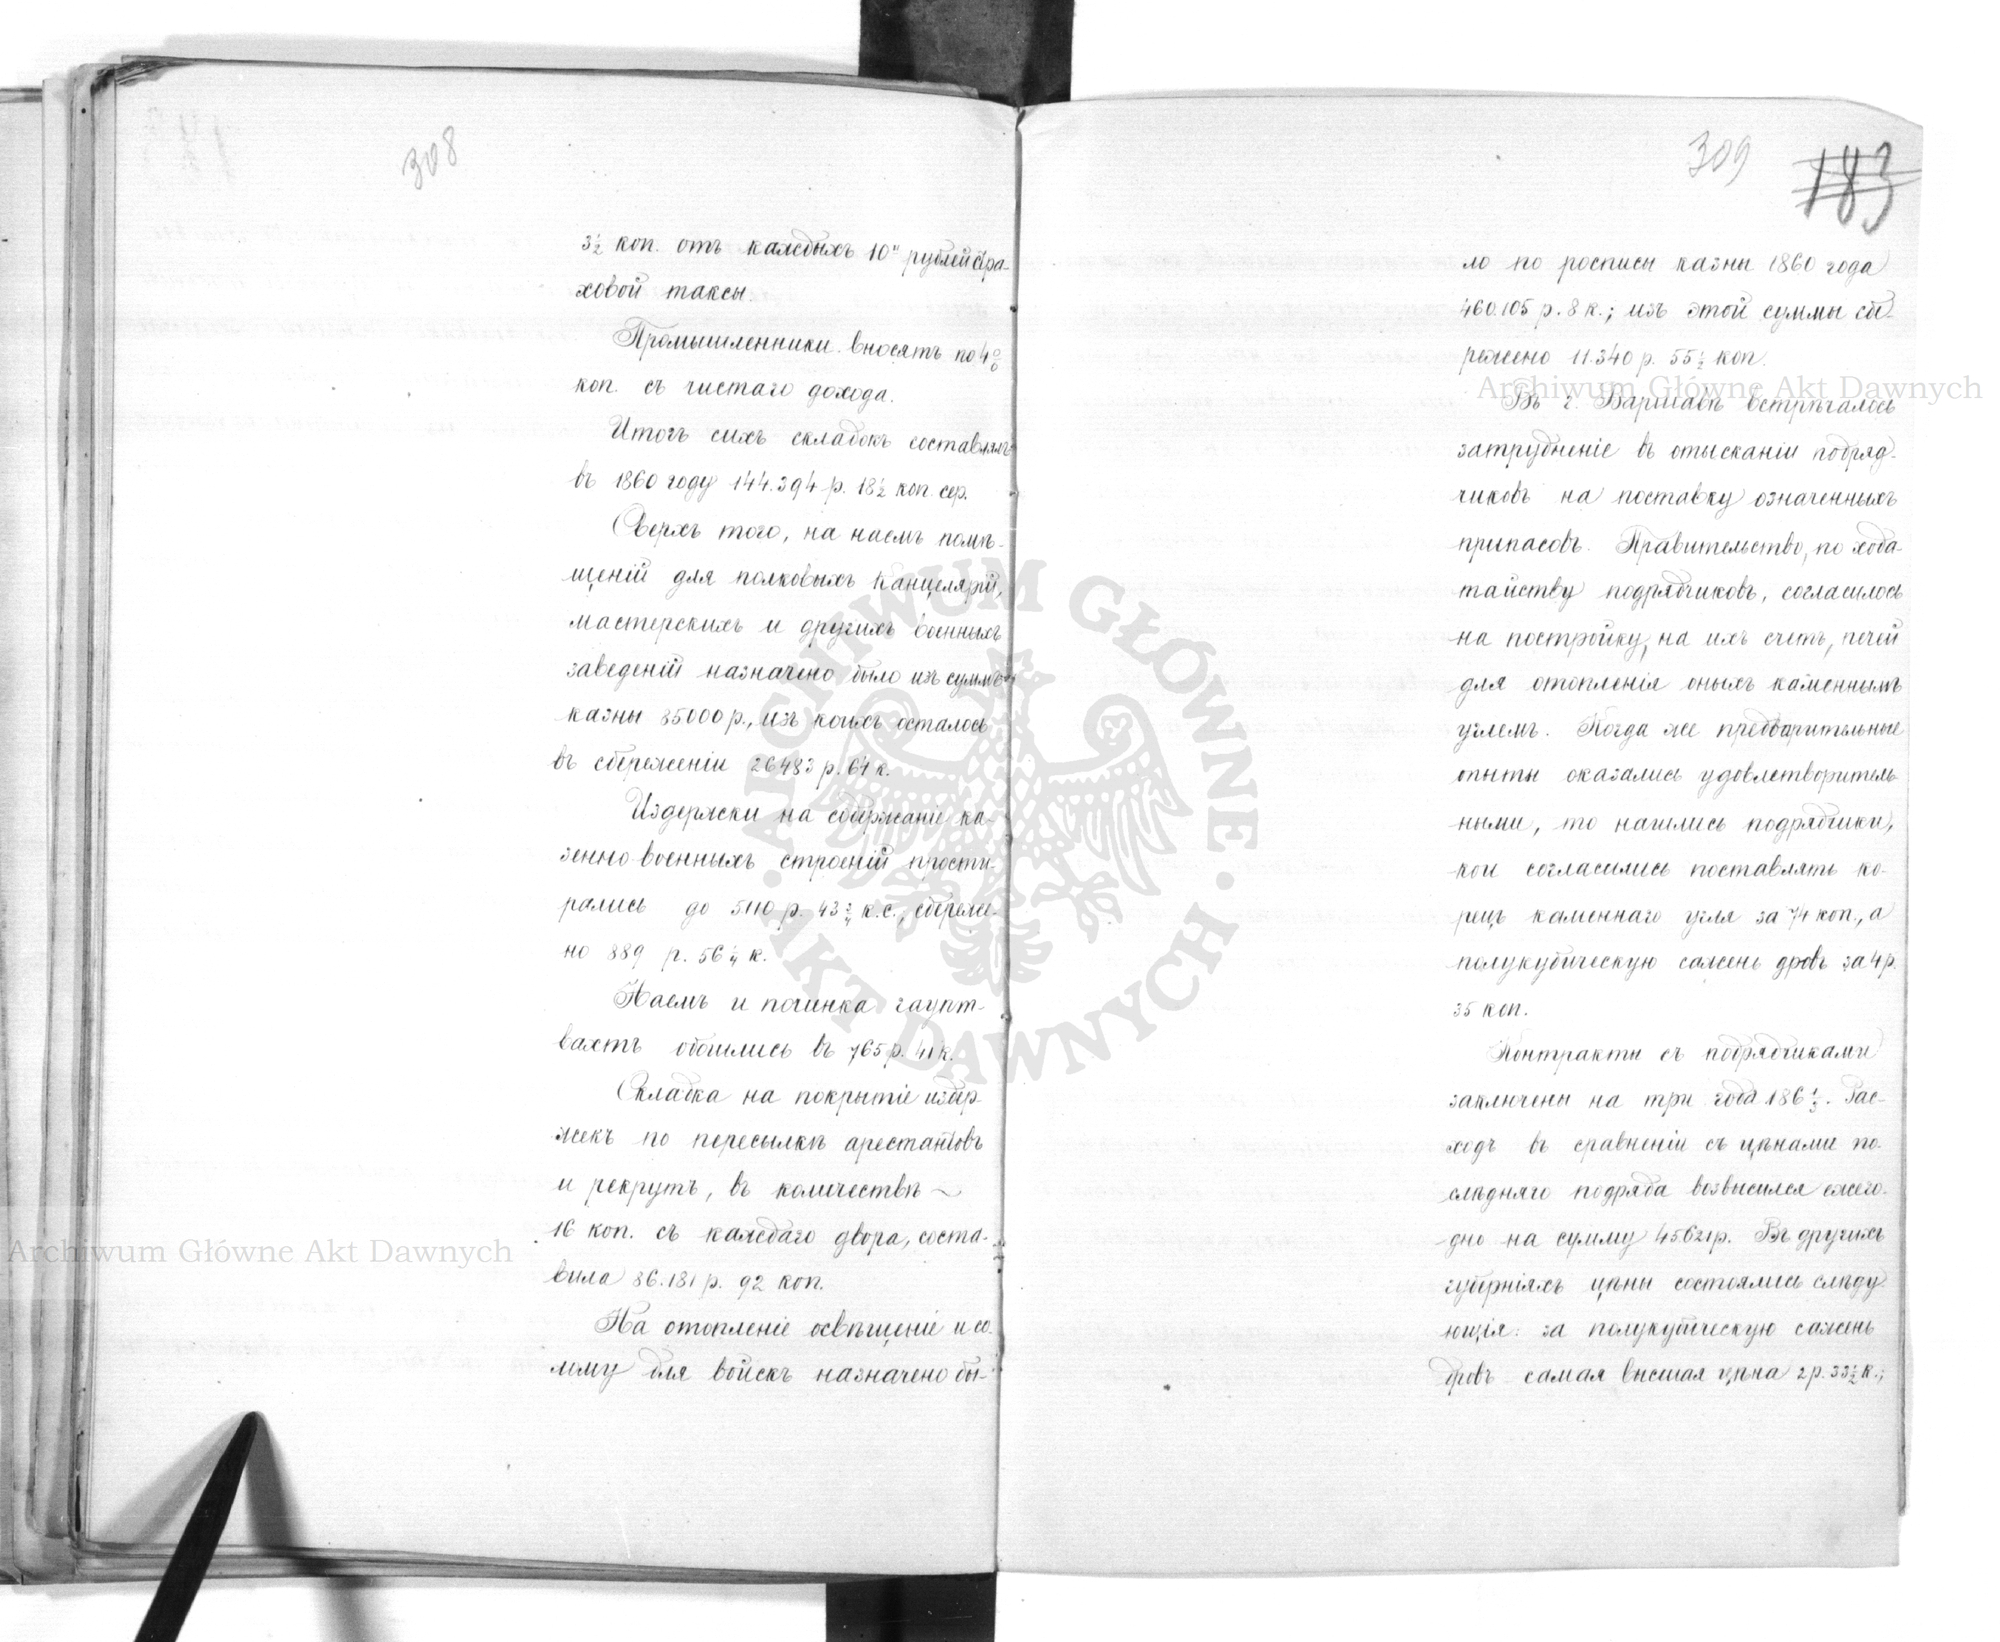 308
3½ коп. отъ каждыхъ 10и рублей стра-
ховой таксы.
Промышленники вносятъ по 4%
коп. съ чистаго дохода.
Итогъ сихъ складокъ составлялъ
въ 1860 году 144.394 р. 18½ коп. сер.
Сверхъ того, на наемъ помѣ-
щеній для полковыхъ канцелярій,
мастерскихъ и другихъ военныхъ
заведеній назначено было изъ суммъ
казны 35000 р., изъ коихъ осталось
въ сбереженіи 26483 р. 64 к.
Издержки на содержаніе ка-
зенно-военныхъ строеній прости-
рались до 5110 р. 43¾ к. с., сбереже-
но 889 р. 56¼ к.
Наемъ и починка гаупт-
вахтъ обошлись въ 765 р. 41 к.
Складка на покрытіе издер-
жекъ по пересылкѣ арестантовъ
и рекрутъ, въ количествѣ ~
16 коп. съ каждаго двора, соста-
вила 86.181 р. 92 коп.
На отопленіе освѣщеніе и со-
лому для войскъ назначено бы-
309
183
ло по росписи казны 1860 года
460.105 р. 8 к.; изъ этой суммы сбе-
режено 11.340 р. 55½ коп.
Въ г. Варшавѣ встрѣчалось
затрудненіе въ отысканіи подряд-
чиковъ на поставку означенныхъ
припасовъ. Правительство, по хода-
тайству подрядчиковъ, согласилось
на постройку, на ихъ счетъ, печей
для отопленія оныхъ каменнымъ
углемъ. Когда же предварительные
опыты оказались удовлетворитель-
ными, то нашлись подрядчики,
кои согласились поставлять ко-
рецъ каменнаго угля за 74 коп., а
полукубическую сажень дровъ за 4 р.
35 коп.
Контракты съ подрядчиками
заключены на три года 186⅓. Рас-
ходъ въ сравненіи съ цѣнами по-
слѣдняго подряда возвысился ежего-
дно на сумму 45621 р. Въ другихъ
губерніяхъ цѣны состоялись слѣду-
ющія: за полукубическую сажень
дровъ самая высшая цѣна 2 р. 33½ к.;
Archiwum Główne Akt Dawnych
Archiwum Główne Akt Dawnych
ARCHIWUM GŁÓWNE
AKT DAWNYCH